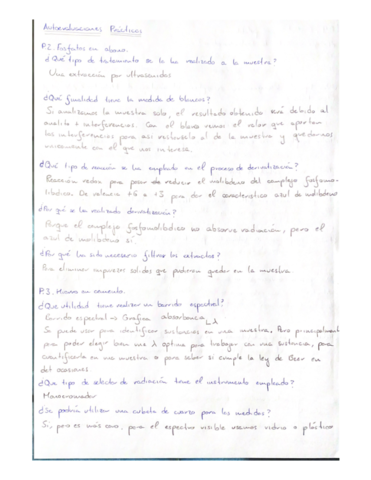 Autoevaluaciones Prácticas
P.2. Fosfatos en abono.
¿Qué tipo de tratamiento se le ha realizado a la muestra?
Una extracción por ultrasonidos
¿Qué finalidad tiene la medida de blancos?
Si analizamos la muestra solo, el resultado obtenido será debido al
analito + interferencias. Con el blanco vemos el valor que aportan
las interferencias para así restárselo al de la muestra y quedarnos
unicamente con el que nos interesa.
¿Qué tipo de reacción se ha empleado en el proceso de derivatización?
Reacción redox para pasar de reducir el molibdeno del complejo fosfomo-
libdico. De valencia +6 a +5 para dar el característico azul de molibdeno
¿Por qué se ha realizado derivatización?
Porque el complejo fosfomolibdico no absorve radiación, pero el
azul de molibdeno si
¿Por qué ha sido necesario filtrar los extractos?
Para eliminar compuestos solidos que pudieran quedar en la muestra
P.3. Hierro en cemento.
¿Qué utilidad tiene realizar un barrido espectral?
Barrido espectral ⇒ Grafica absorbancia λ
Se puede usar para identificar sustancias en una muestra, Pero principalmente
para poder elegir bien una λ optima para trabajar con una sustancia, para
cuantificarla en una muestra o para saber si cumple la ley de Beer en
det ocasiones
¿Que tipo de selector de radiación tiene el instrumento empleado?
Monocromador
¿Se podría utilizar una cubeta de cuarzo para las medidas?
Si, pero es más caro, para el espectro visible usamos vidrio o plástico